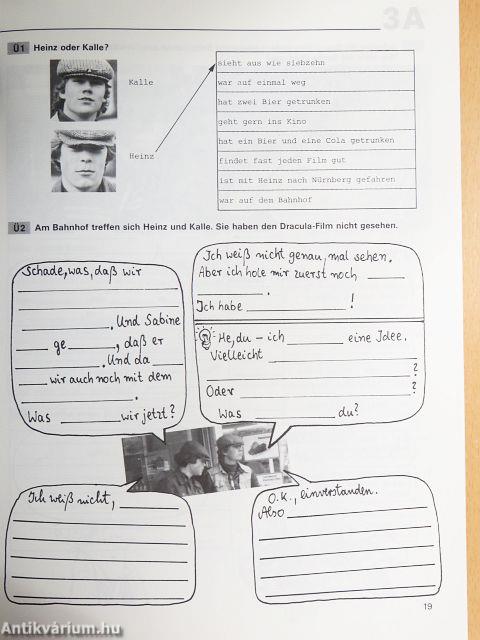 3A
Ü1 Heinz oder Kalle?
Kalle
Heinz
sieht aus wie siebzehn
war auf einmal weg
hat zwei Bier getrunken
geht gern ins Kino
hat ein Bier und eine Cola getrunken
findet fast jeden Film gut
ist mit Heinz nach Nürnberg gefahren
war auf dem Bahnhof
Ü2 Am Bahnhof treffen sich Heinz und Kalle. Sie haben den Dracula-Film nicht gesehen.
Schade, was, daß wir
. Und Sabine
ge , daß er
. Und da
wir auch noch mit dem
.
Was wir jetzt?
Ich weiß nicht genau, mal sehen.
Aber ich hole mir zuerst noch
.
Ich habe !
He, du – ich eine Idee.
Vielleicht
?
Oder ?
Was du?
Ich weiß nicht,
O.K., einverstanden.
Also
19
Antikvárium.hu